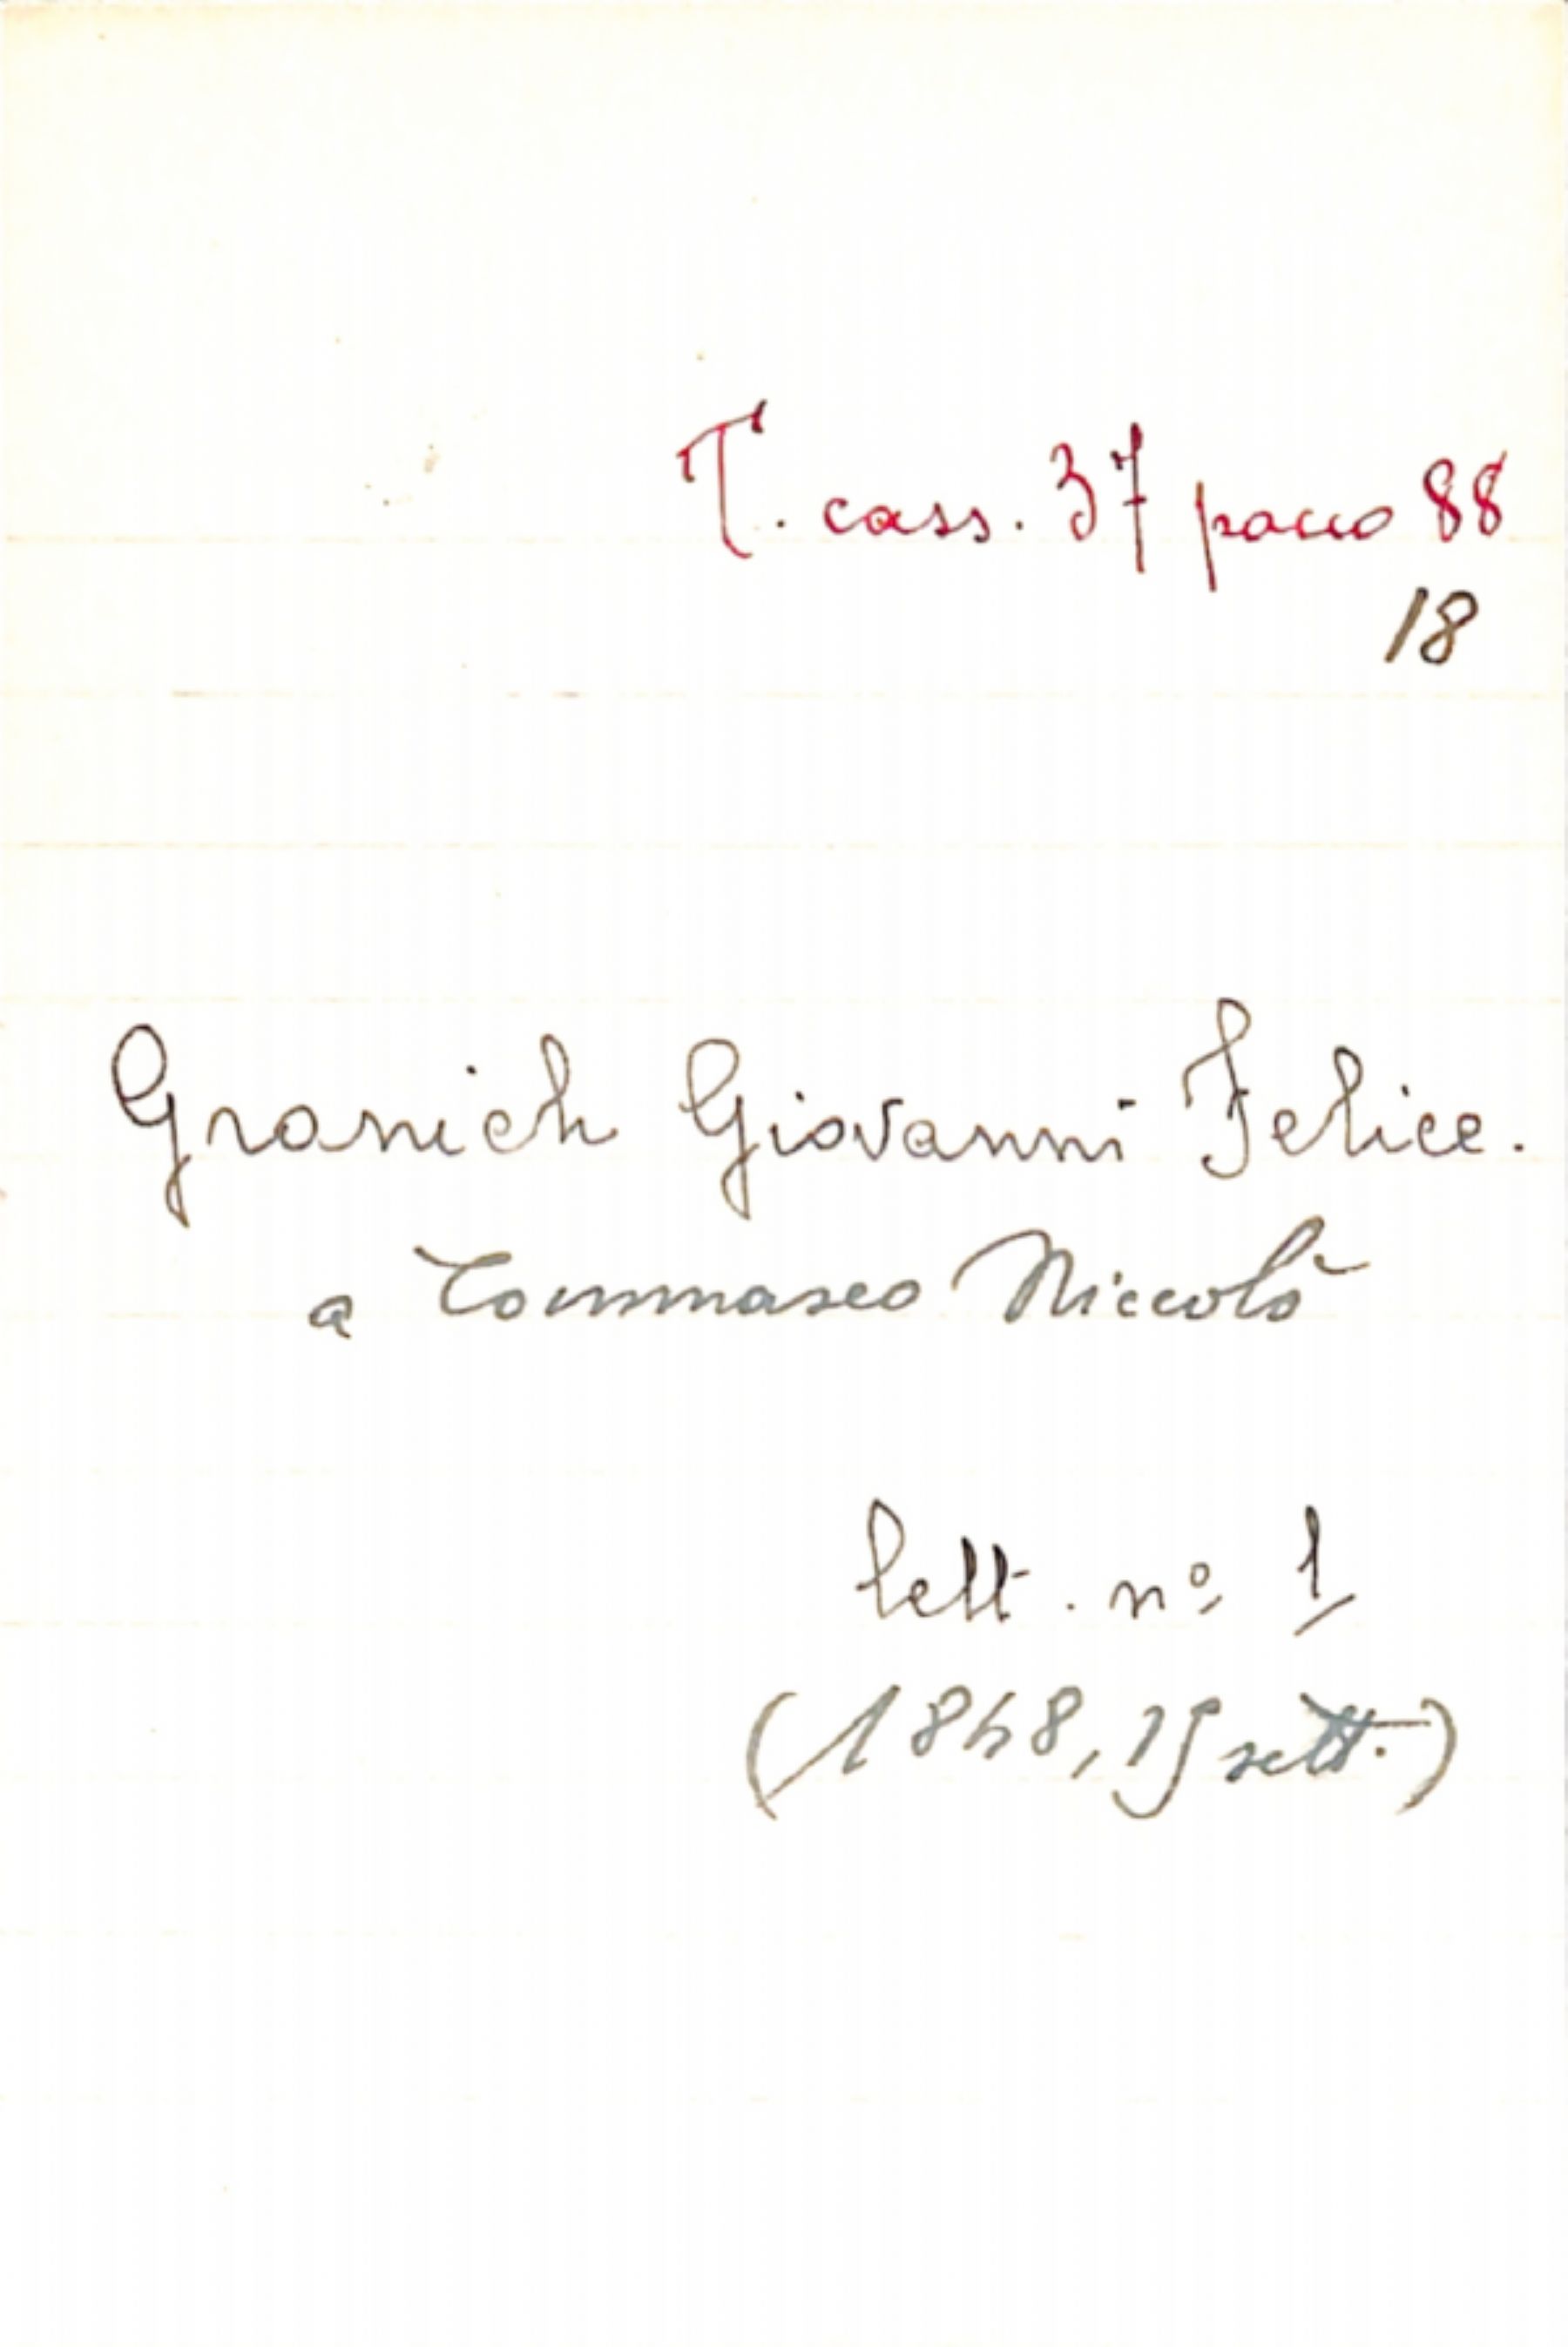 T. cass. 37 pacco 88
18
Granich Giovanni Felice.
a Tommaseo Niccolò
lett. nº 1
(1848, 19 sett.)